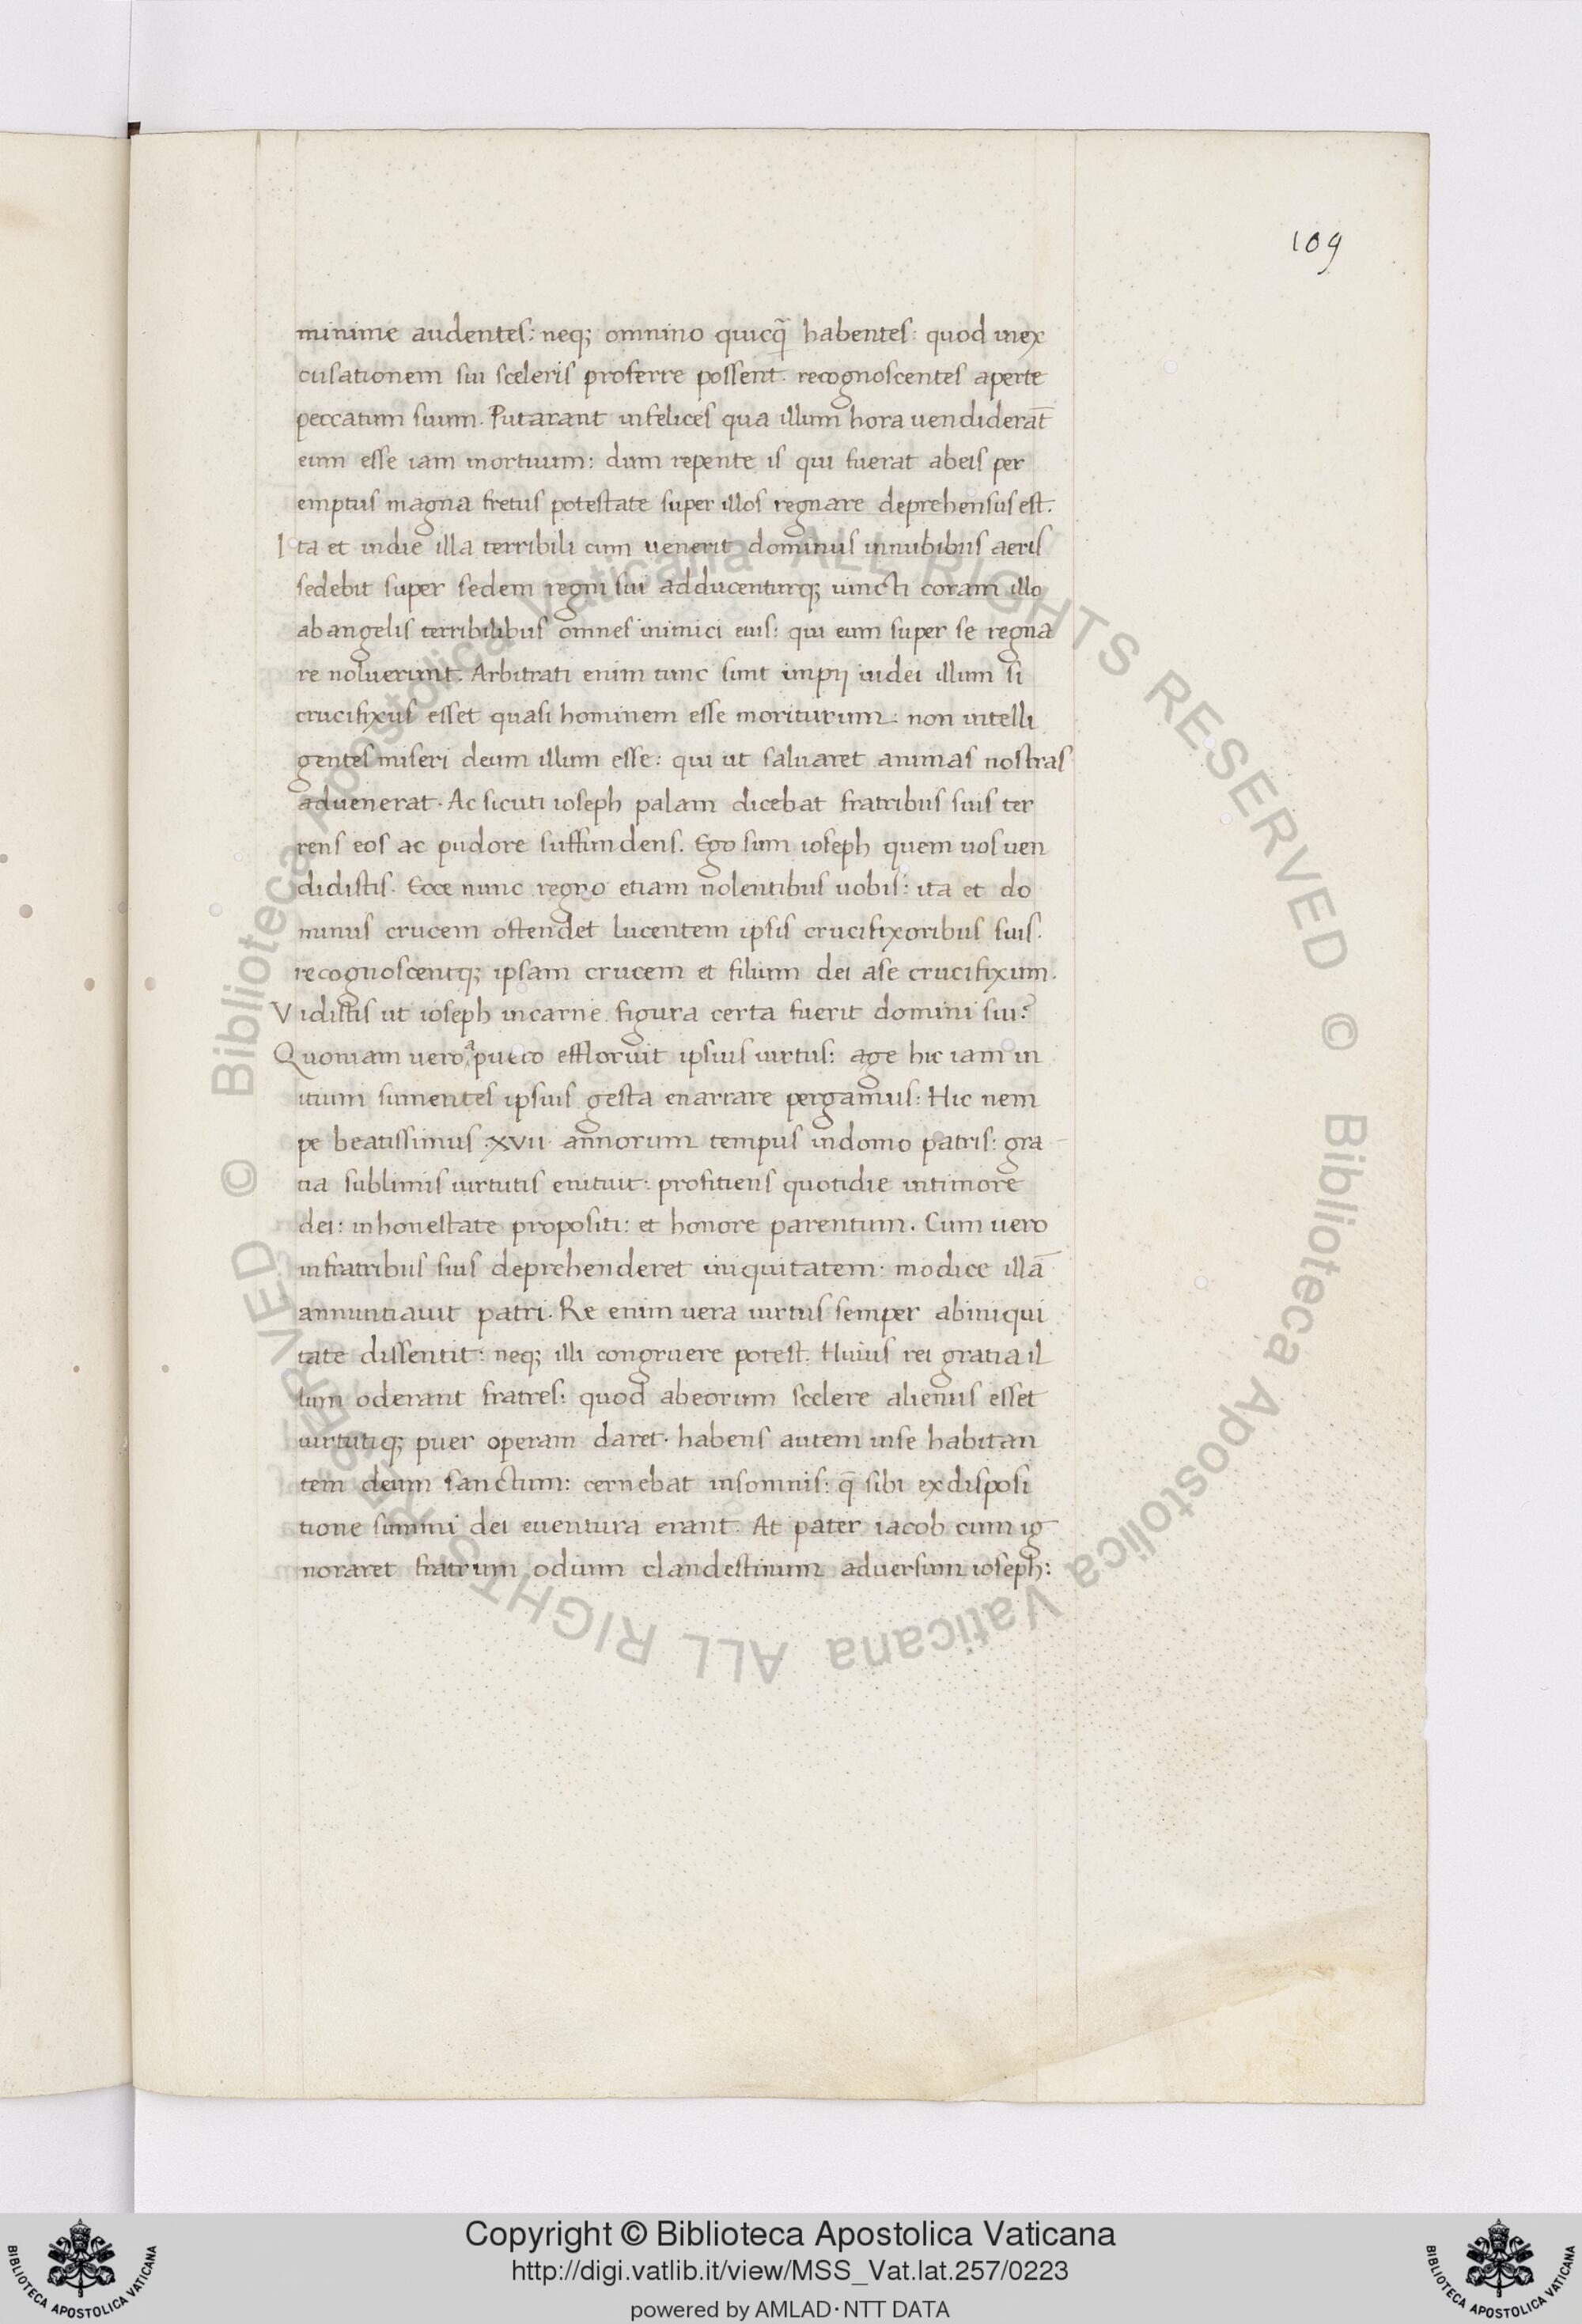 109
minime audentes: neq; omnino quicq̃ habentes: quod inex
cusationem sui sceleris proferre possent. recognoscentes aperte
peccatum suum. Putarant infelices qua illum hora vendiderat̄
eum esse iam mortuum: dum repente is qui fuerat abeis per
emptus magna fretus potestate super illos regnare deprehensus est.
Ita et indie illa terribili cum venerit dominus innubibus aeris
sedebit super sedem regni sui adducenturq; vincti coram illo
ab angelis terribilibus omnes inimici eius: qui eum super se regna
re noluerunt. Arbitrati enim tunc sunt impij iudei illum si
crucifixus esset quasi hominem esse moriturum: non intelli
gentes miseri deum illum esse: qui ut salvaret animas nostras
advenerat. Ac sicuti ioseph palam dicebat fratribus suis ter
rens eos ac pudore suffundens. Ego sum ioseph quem uos uen
didistis. Ecce nunc regno etiam nolentibus uobis: ita et do
minus crucem ostendet lucentem ipsis crucifixoribus suis.
recognoscentq; ipsam crucem et filium dei ase crucifixum.
Vidistis ut ioseph incarne figura certa fuerit domini sui?
Quoniam uero a puero effloruit ipsius uirtus: age hic iam in
itium sumentes ipsius gesta enarrare pergamus: Hic nem
pe beatissimus .xvii. annorum tempus indomo patris: gra
tia sublimis uirtutis enituit: profitiens quotidie intimore
dei: inhonestate propositi: et honore parentum. Cum uero
infratribus suis deprehenderet iniquitatem: modice illā
annuntiauit patri. Re enim uera uirtus semper abiniqui
tate dissentit: neq; illi congruere potest. Huius rei gratia il
lum oderant fratres: quod abeorum scelere alienus esset
uirtutiq; puer operam daret. habens autem inse habitan
tem deum sanctum: cernebat insomnis: q̄ sibi exdisposi
tione summi dei euentura erant. At pater iacob cum ig
noraret fratrum odium clandestinum adversum ioseph:
Biblioteca Apostolica Vaticana ALL RIGHTS RESERVED ©
Biblioteca Apostolica Vaticana ALL RIGHTS RESERVED ©
Copyright © Biblioteca Apostolica Vaticana
http://digi.vatlib.it/view/MSS_Vat.lat.257/0223
powered by AMLAD·NTT DATA
BIBLIOTECA APOSTOLICA VATICANA
BIBLIOTECA APOSTOLICA VATICANA